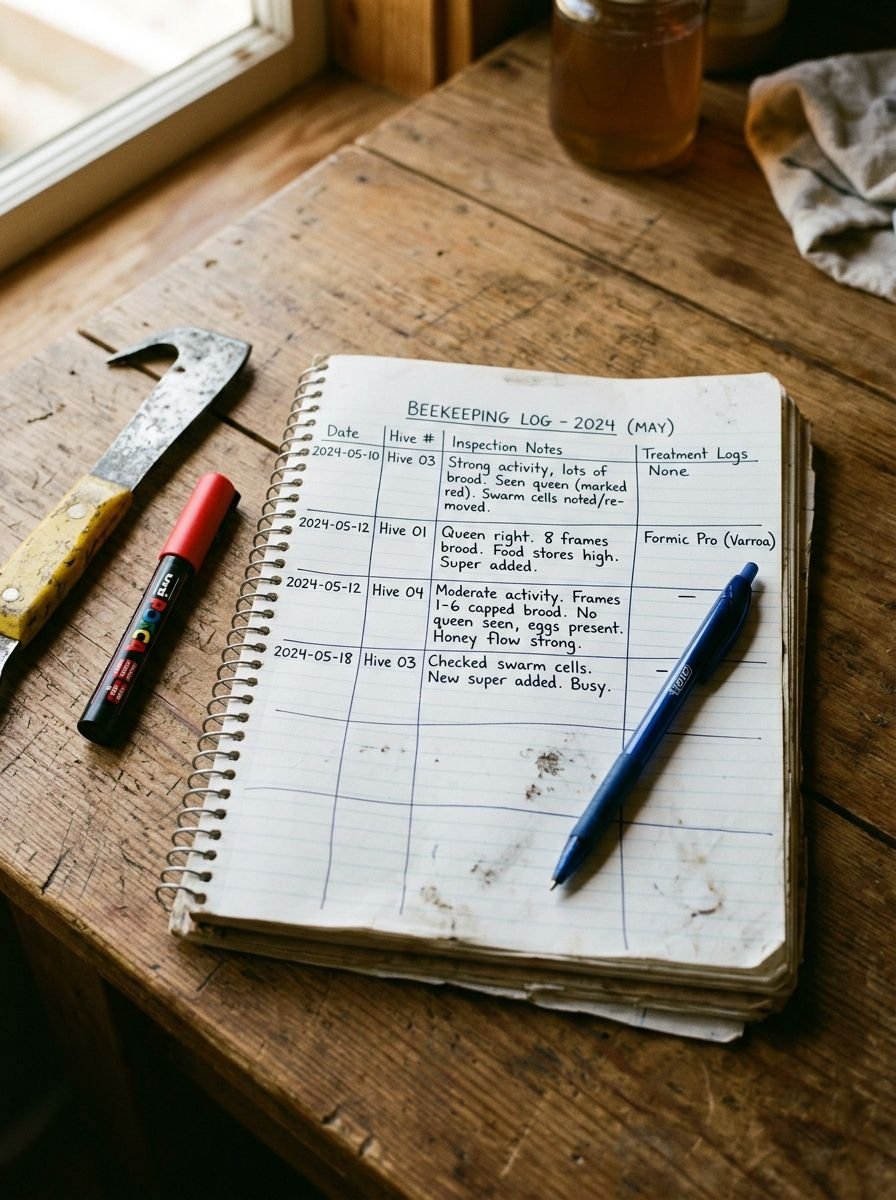 BEEKEEPING LOG - 2024 (MAY)
Date Hive # Inspection Notes Treatment Logs
2024-05-10 Hive 03 Strong activity, lots of None
brood. Seen queen (marked
red). Swarm cells noted/re-
moved.
2024-05-12 Hive 01 Queen right. 8 frames Formic Pro (Varroa)
brood. Food stores high.
Super added.
2024-05-12 Hive 04 Moderate activity. Frames —
1-6 capped brood. No
queen seen, eggs present.
Honey flow strong.
2024-05-18 Hive 03 Checked swarm cells. –
New super added. Busy.